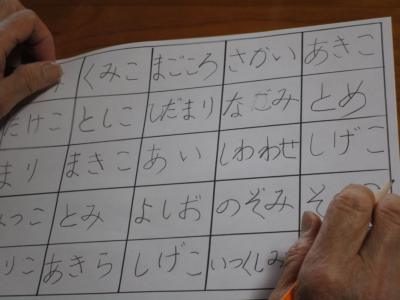 くみこ まごころ さかい あきこ
たけこ としこ ひだまり なごみ とめ
まり まきこ あい しわわせ しげこ
とみ よしお のぞみ
りこ あきら しげこ いつくしみ